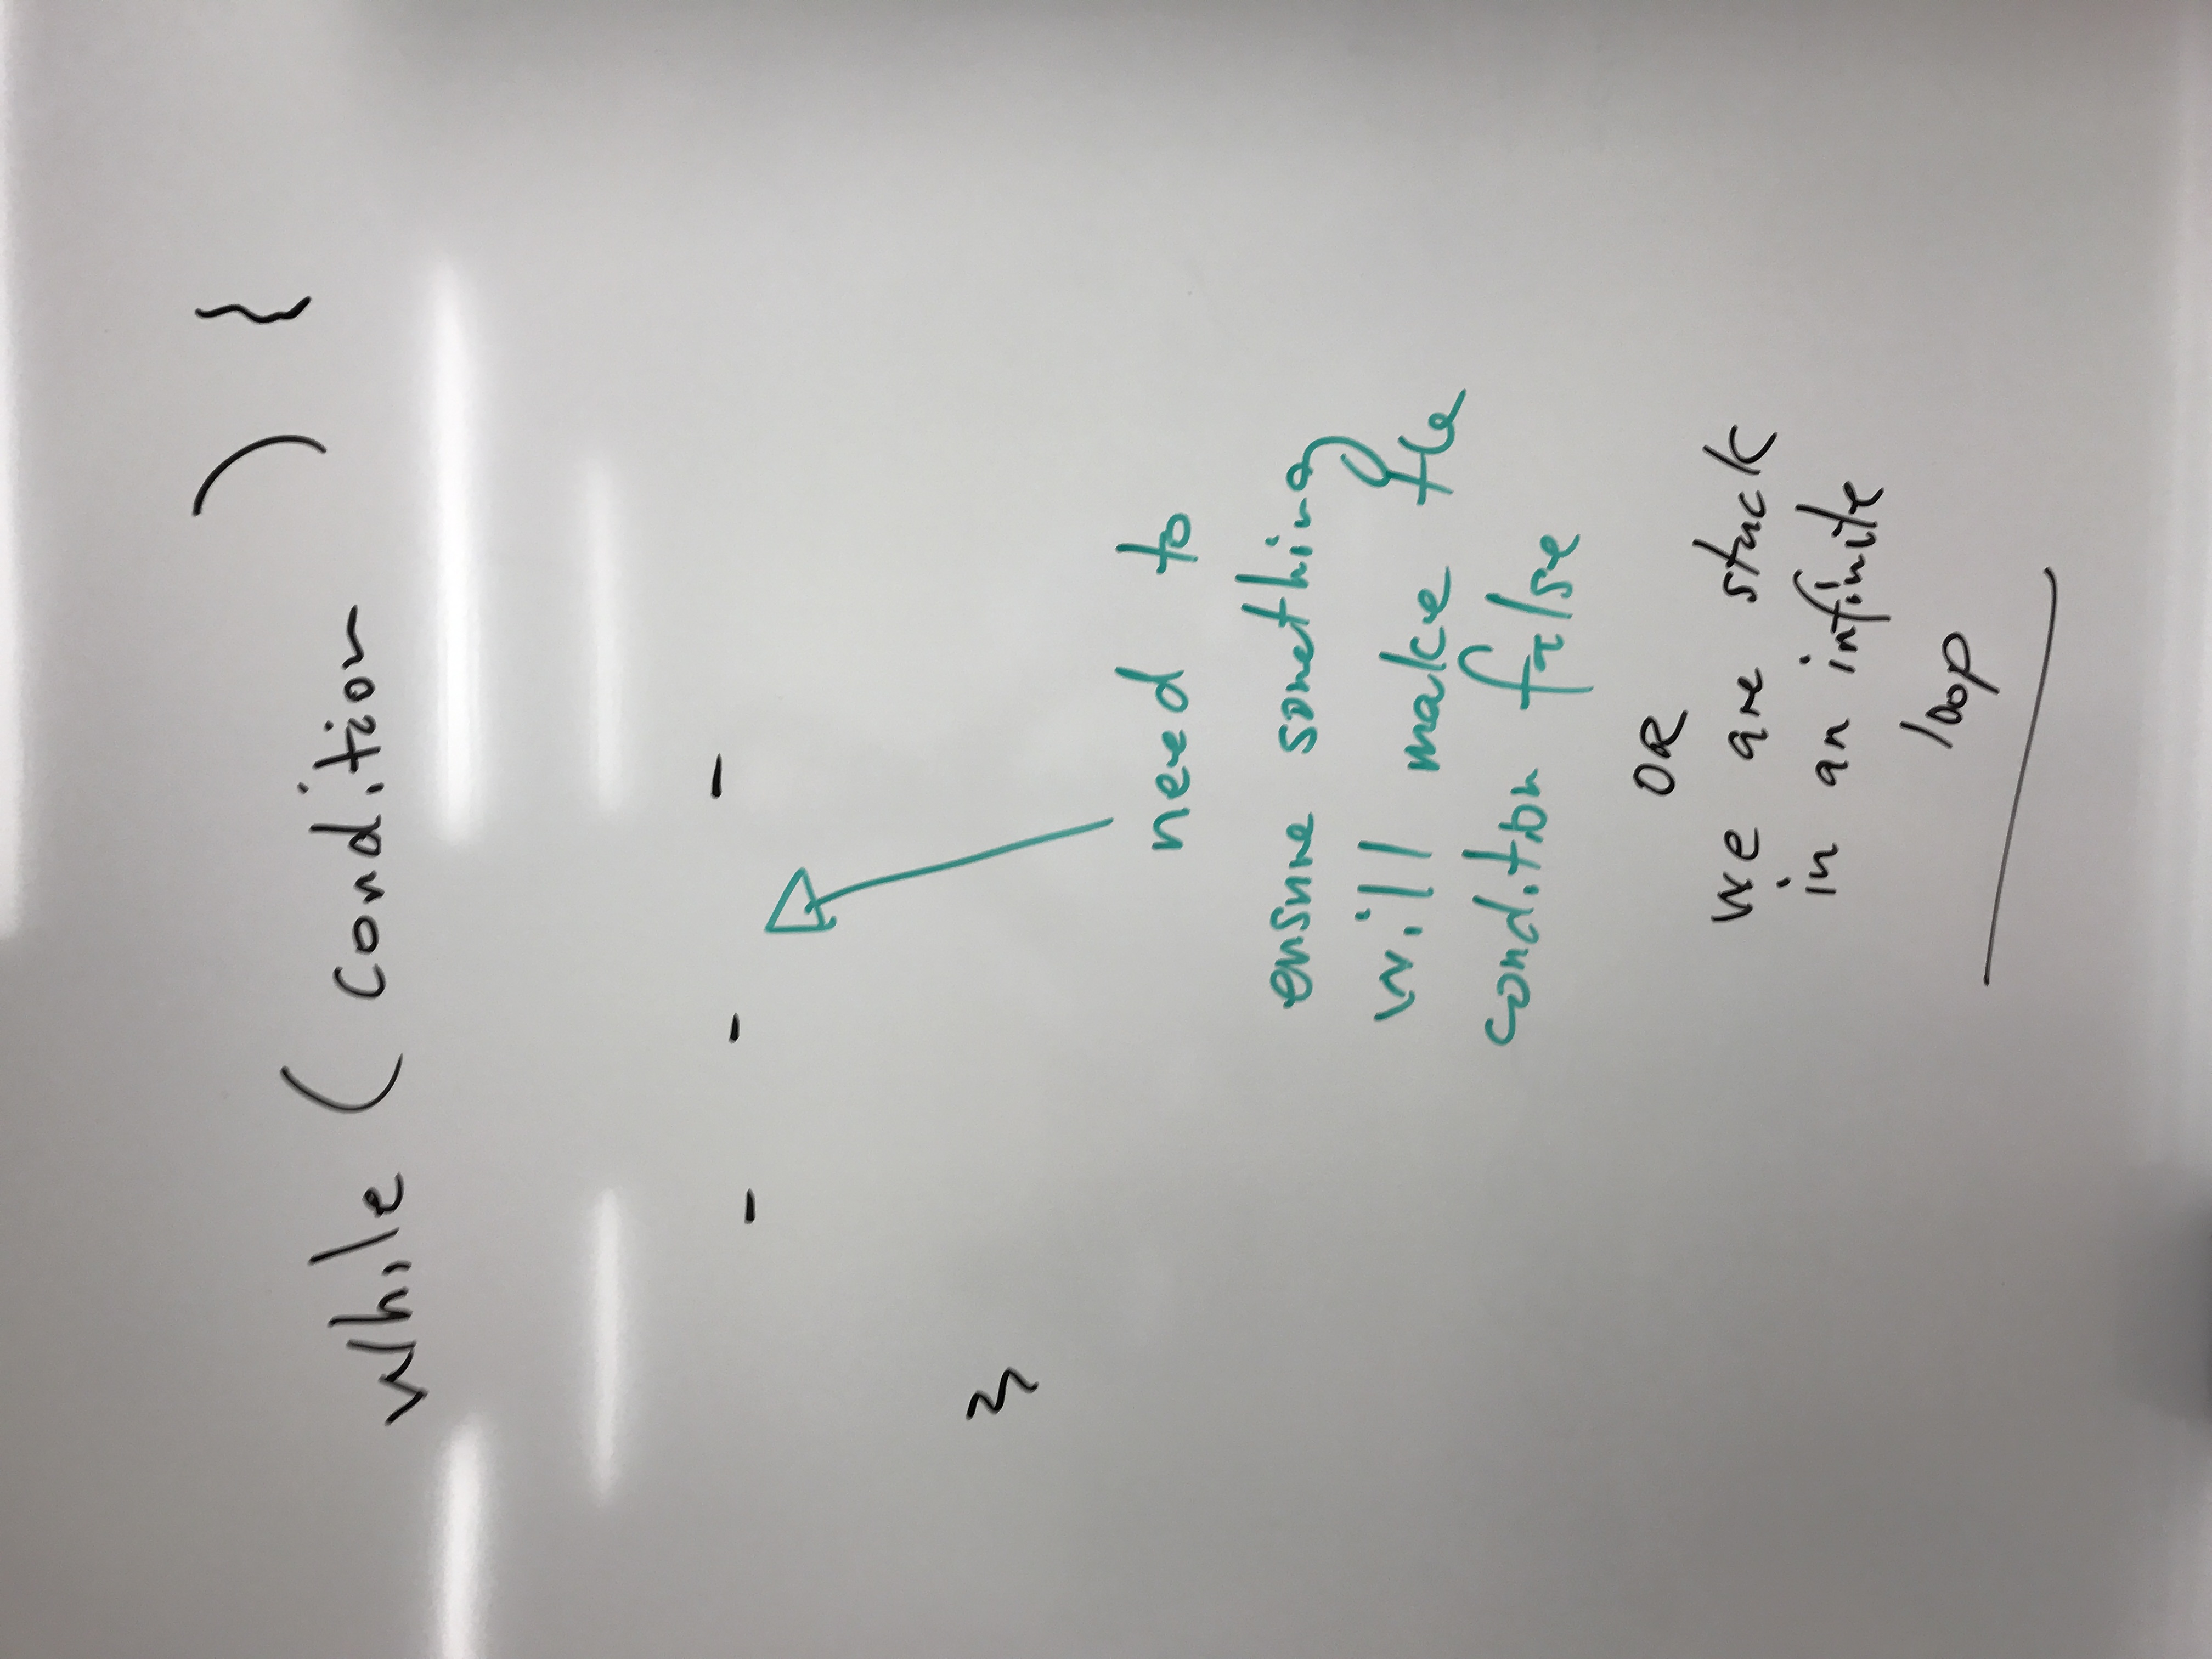 while ( condition ) {
- - -
}
need to
ensure something
will make the
condition false
OR
we are stuck
in an infinite
loop